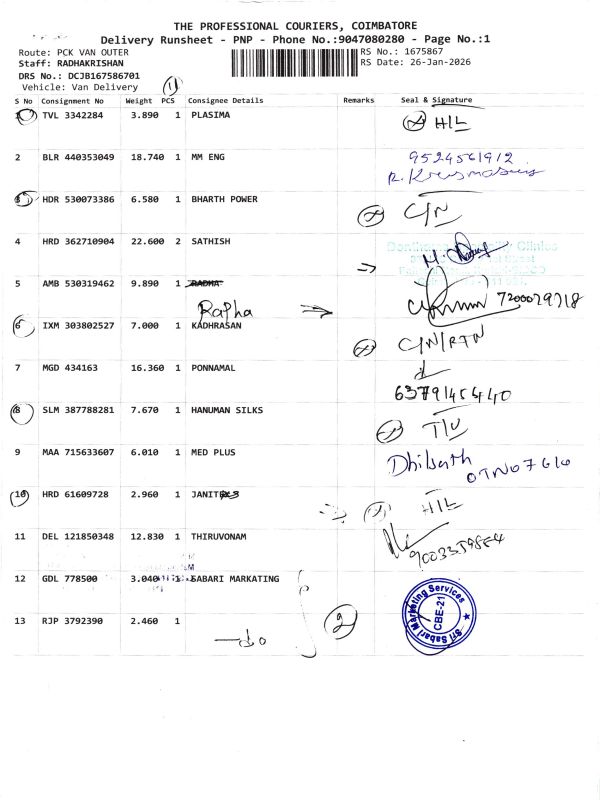 THE PROFESSIONAL COURIERS, COIMBATORE
Delivery Runsheet - PNP - Phone No.:9047080280 - Page No.:1
Route: PCK VAN OUTER RS No.: 1675867
Staff: RADHAKRISHAN RS Date: 26-Jan-2026
DRS No.: DCJB167586701
Vehicle: Van Delivery 1
S No Consignment No Weight PCS Consignee Details Remarks Seal & Signature
1 TVL 3342284 3.890 1 PLASIMA H/L
2 BLR 440353049 18.740 1 MM ENG 9524561912
3 HDR 530073386 6.580 1 BHARTH POWER C/N
4 HRD 362710904 22.600 2 SATHISH
5 AMB 530319462 9.890 1 RADHA
Rapha 7200079718
6 IXM 303802527 7.000 1 KADHRASAN C/N/RTN
7 MGD 434163 16.360 1 PONNAMAL
6379145440
8 SLM 387788281 7.670 1 HANUMAN SILKS
9 MAA 715633607 6.010 1 MED PLUS
10 HRD 61609728 2.960 1 JANIT H/L
11 DEL 121850348 12.830 1 THIRUVONAM
12 GDL 778500 3.040 1 SABARI MARKATING
2
Sri Sabari Marketing Services
CBE-21
13 RJP 3792390 2.460 1